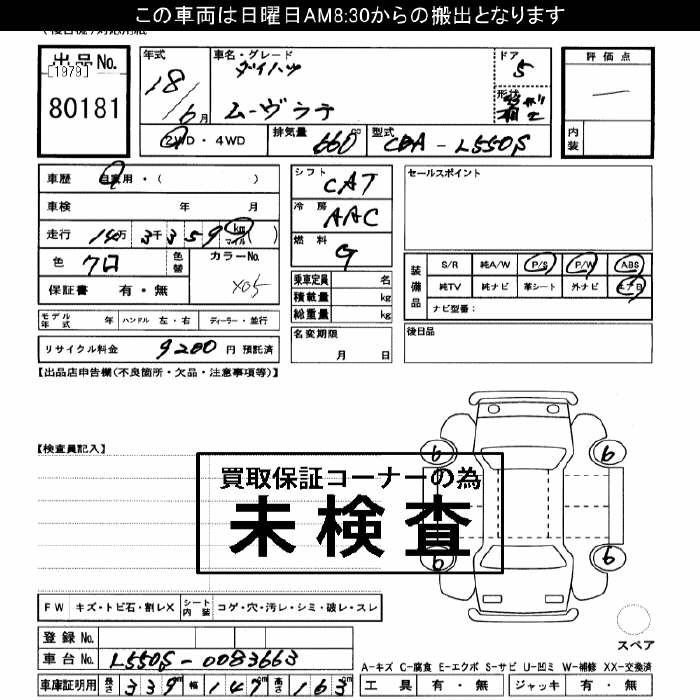 この車両は日曜日AM8:30からの搬出となります
出品No.
[1979]
80181
年式
18/6月
車名・グレード
ダイハツ
ムーヴラテ
ドア
5
形状
評価点
内装
2WD・4WD
排気量
660cc
型式
CBA-L550S
車歴 自家用・( )
車検 年 月
走行 14万3千359 km マイル ( )
色 クロ
色替
カラーNo.
X05
保証書 有・無
モデル年式 年 ハンドル 左・右 ディーラー・並行
リサイクル料金 9200円 預託済
シフト
CAT
冷房
AAC
燃料
G
乗車定員 名
積載量 kg
総重量 kg
名変期限
月 日
セールスポイント
装備品
S/R 純A/W P/S P/W ABS
純TV 純ナビ 革シート 外ナビ エアB
ナビ型番:
後日品
【出品店申告欄(不良箇所・欠品・注意事項等)】
【検査員記入】
買取保証コーナーの為
未検査
6
6
6
6
スペア
FW キズ・トビ石・割レX シート内装 コゲ・穴・汚レ・シミ・破レ・スレ
登録No.
車台No. L550S-0083663
車庫証明用 長さ 339cm 幅 147cm 高さ 163cm
A-キズ C-腐食 E-エクボ S-サビ U-凹ミ W-補修 XX-交換済
工具 有・無 ジャッキ 有・無